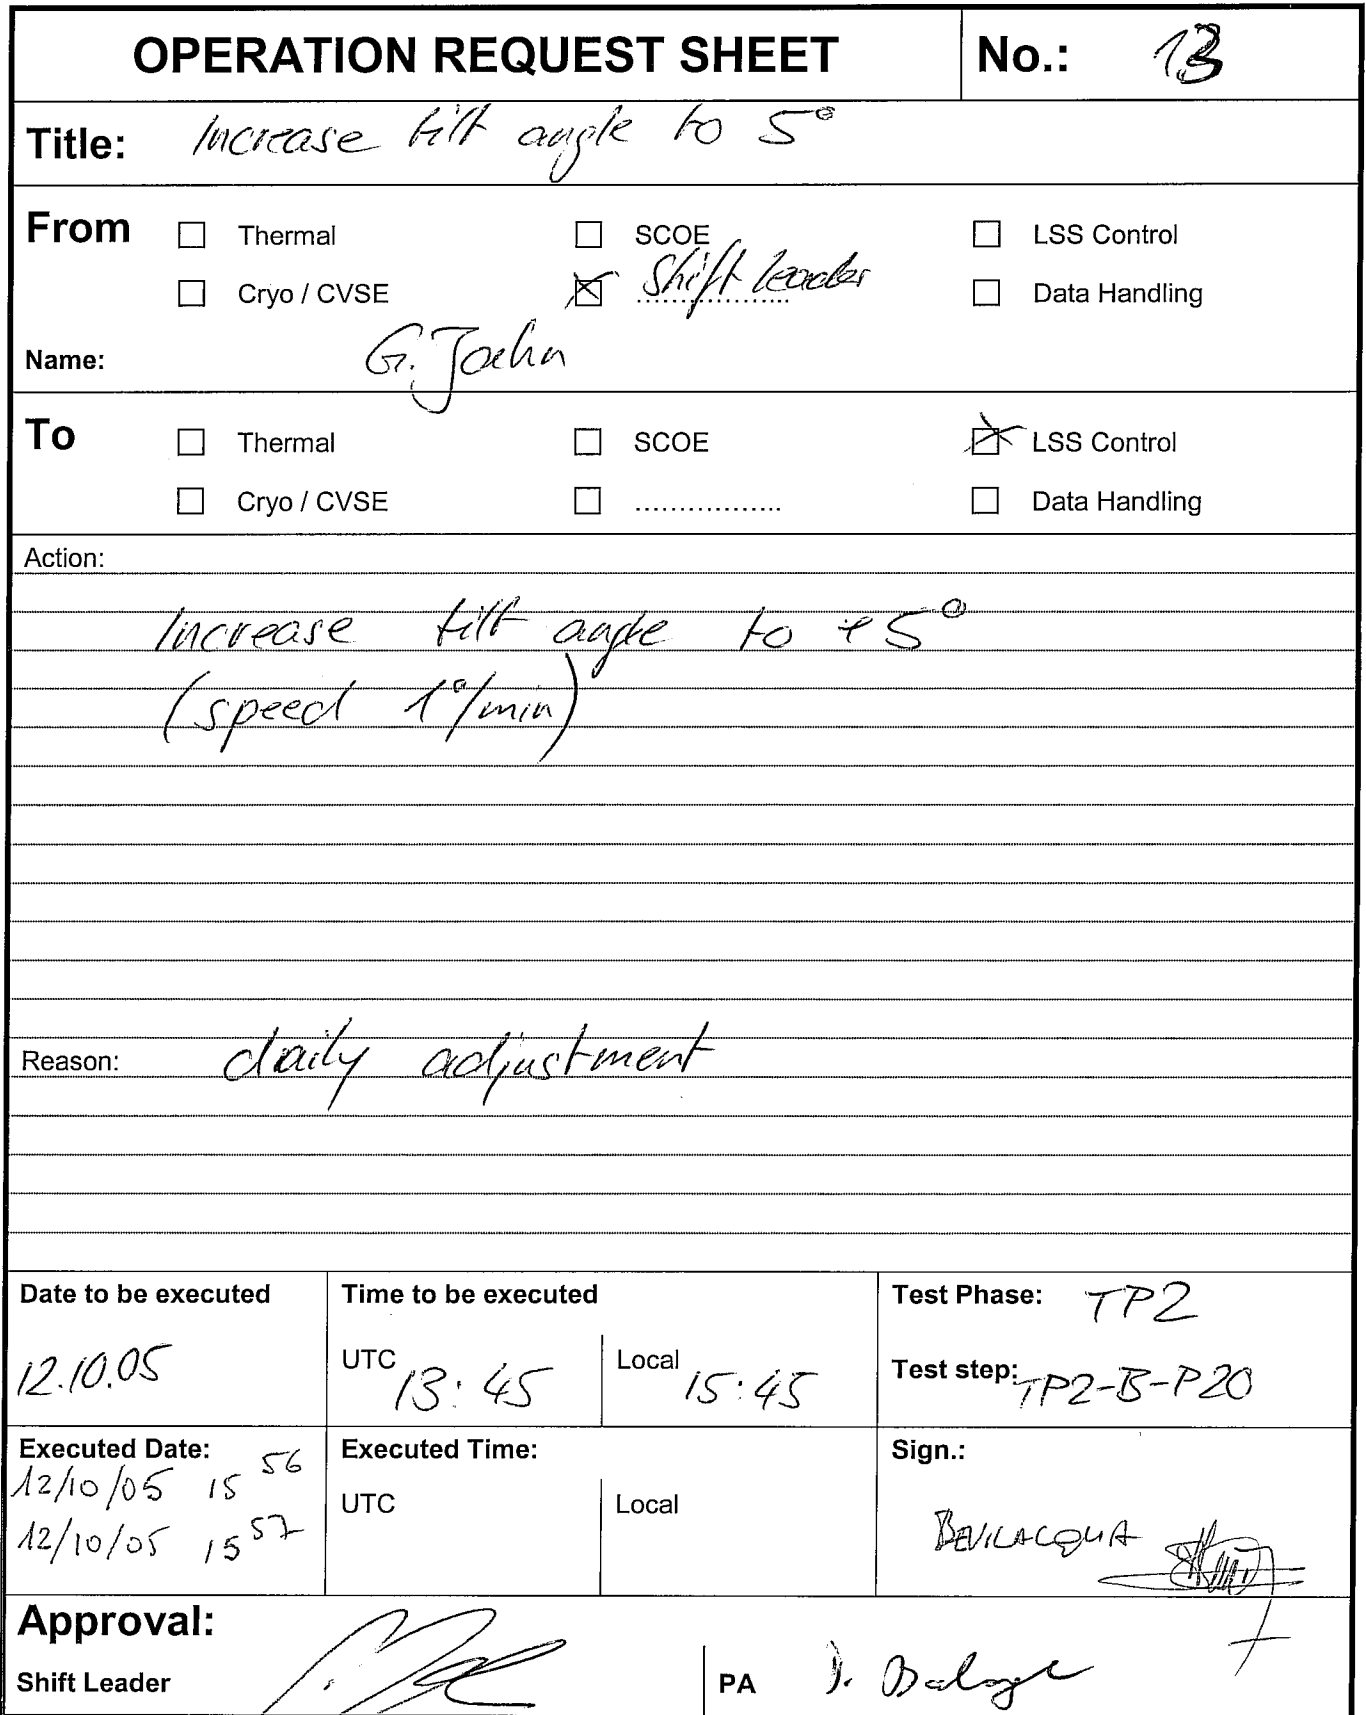 OPERATION REQUEST SHEET No.: 13
Title: Increase tilt angle to 5°
From
Thermal SCOE LSS Control
Cryo / CVSE Shift leader Data Handling
Name: G. Jahn
To
Thermal SCOE LSS Control
Cryo / CVSE ................. Data Handling
Action:
Increase tilt angle to +5°
(speed 1°/min)
Reason: daily adjustment
Date to be executed Time to be executed Test Phase: TP2
12.10.05 UTC 13:45 Local 15:45 Test step: TP2-B-P20
Executed Date: Executed Time: Sign.:
12/10/05 15 56 UTC Local
12/10/05 15 57 BEVILACQUA
Approval:
Shift Leader PA